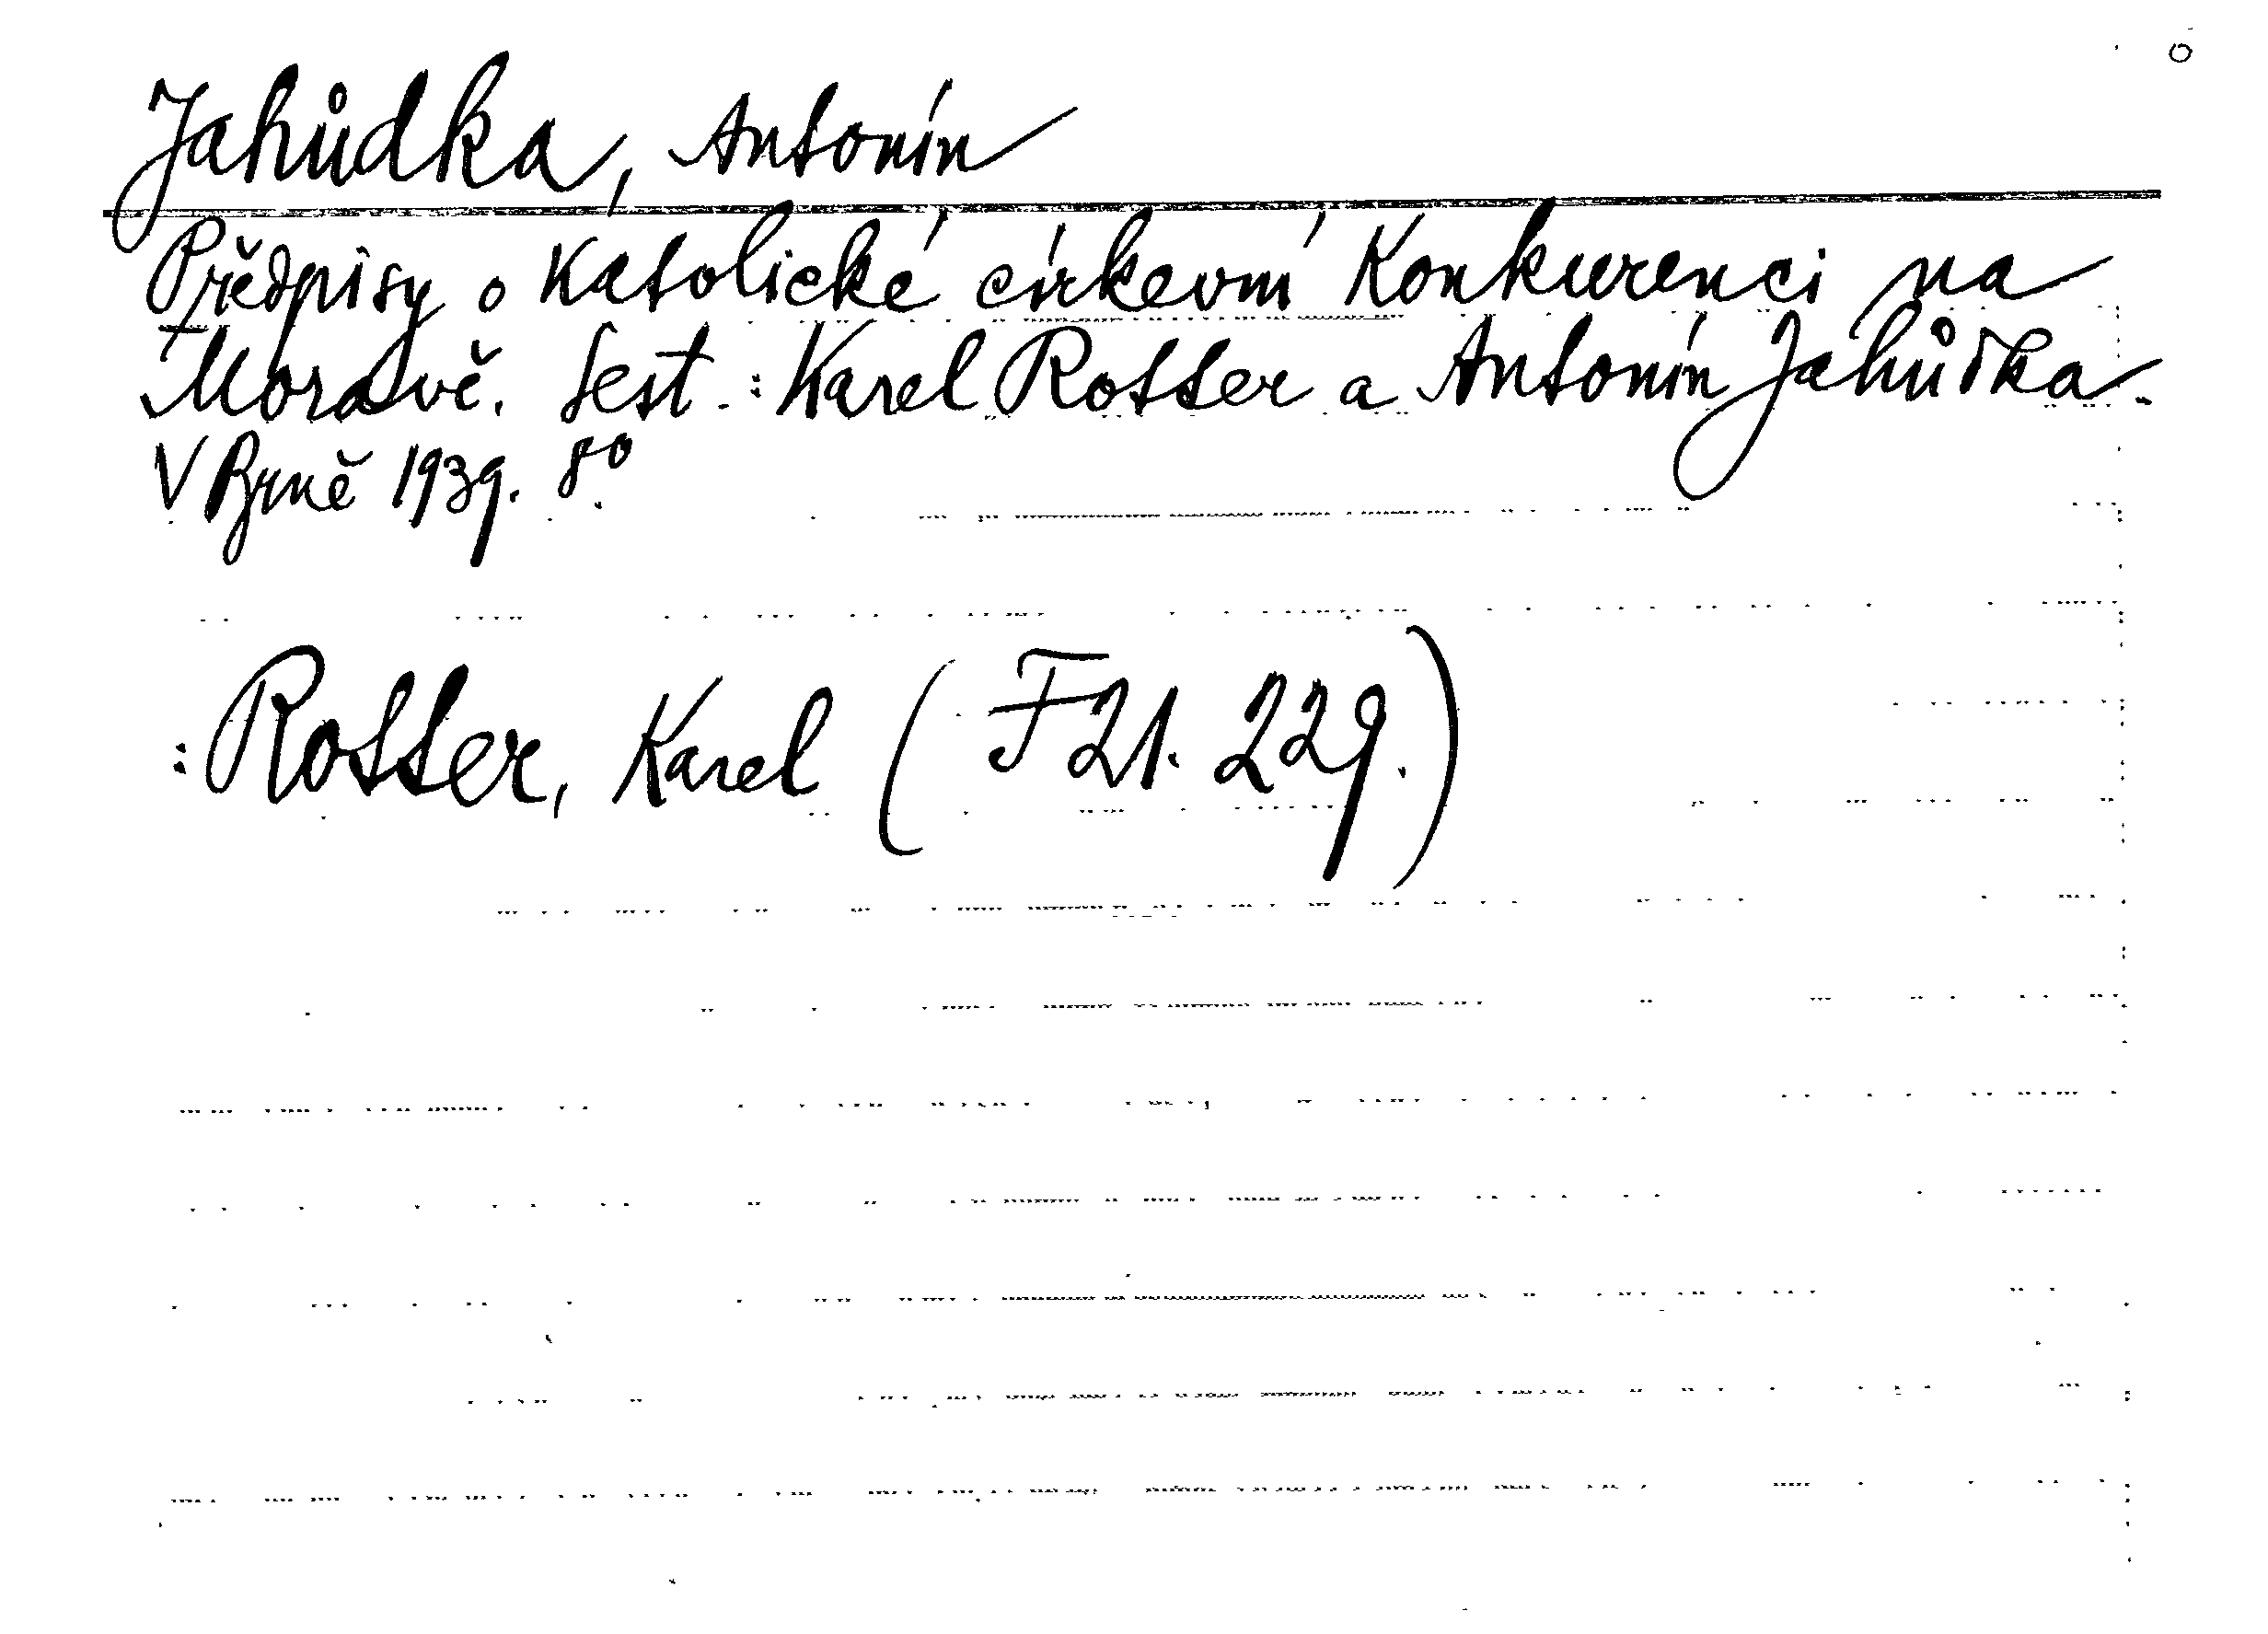 Jahůdka, Antonín
Předpisy o katolické církevní konkurenci na
Moravě. Sest.: Karel Rotter a Antonín Jahůdka.
V Brně 1939. 8°.
: Rotter, Karel ( F 21. 229.)